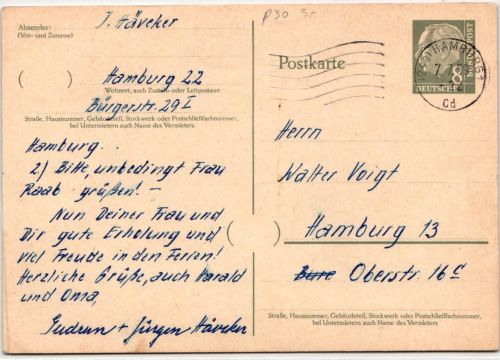 p30 5.-
Absender:
(Vor- und Zuname)
J. Hävcker
Hamburg 22
Wohnort, auch Zustell- oder Leitpostamt
Bürgerstr. 29 I
Straße, Hausnummer, Gebäudeteil, Stockwerk oder Postschließfachnummer,
bei Untermietern auch Name des Vermieters
Hamburg.
2) Bitte, unbedingt Frau
Raab grüßen! -
Nun Deiner Frau und
Dir gute Erholung und
viel Freude in den Ferien!
Herzliche Grüße, auch Harald
und Oma,
Gudrun + Jürgen Hävcker
Postkarte
DEUTSCHE
BUNDESPOST
8
HAMBURG
7. 7.
cd
Herrn
Walter Voigt
Hamburg 13
Oberstr. 16c
Straße, Hausnummer, Gebäudeteil, Stockwerk oder Postschließfachnummer,
bei Untermietern auch Name des Vermieters